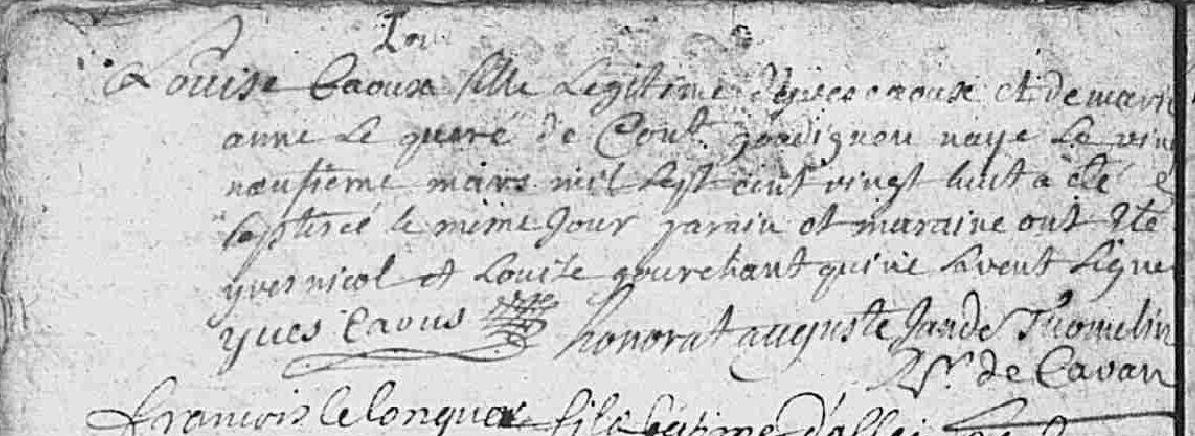 Louise Caoux fille Legitime d'yves caoux et de marie
anne Le queré de naye Le vint
neufsieme mars mil sept cent vingt huit a eté
baptisée le même Jour parain et maraine ont eté
yves nicol et Louise gourchant qui ne savent signer
yves Caous honorat auguste Jande Tromelin
Rr. de Cavan
francois le fils legitime d'allei